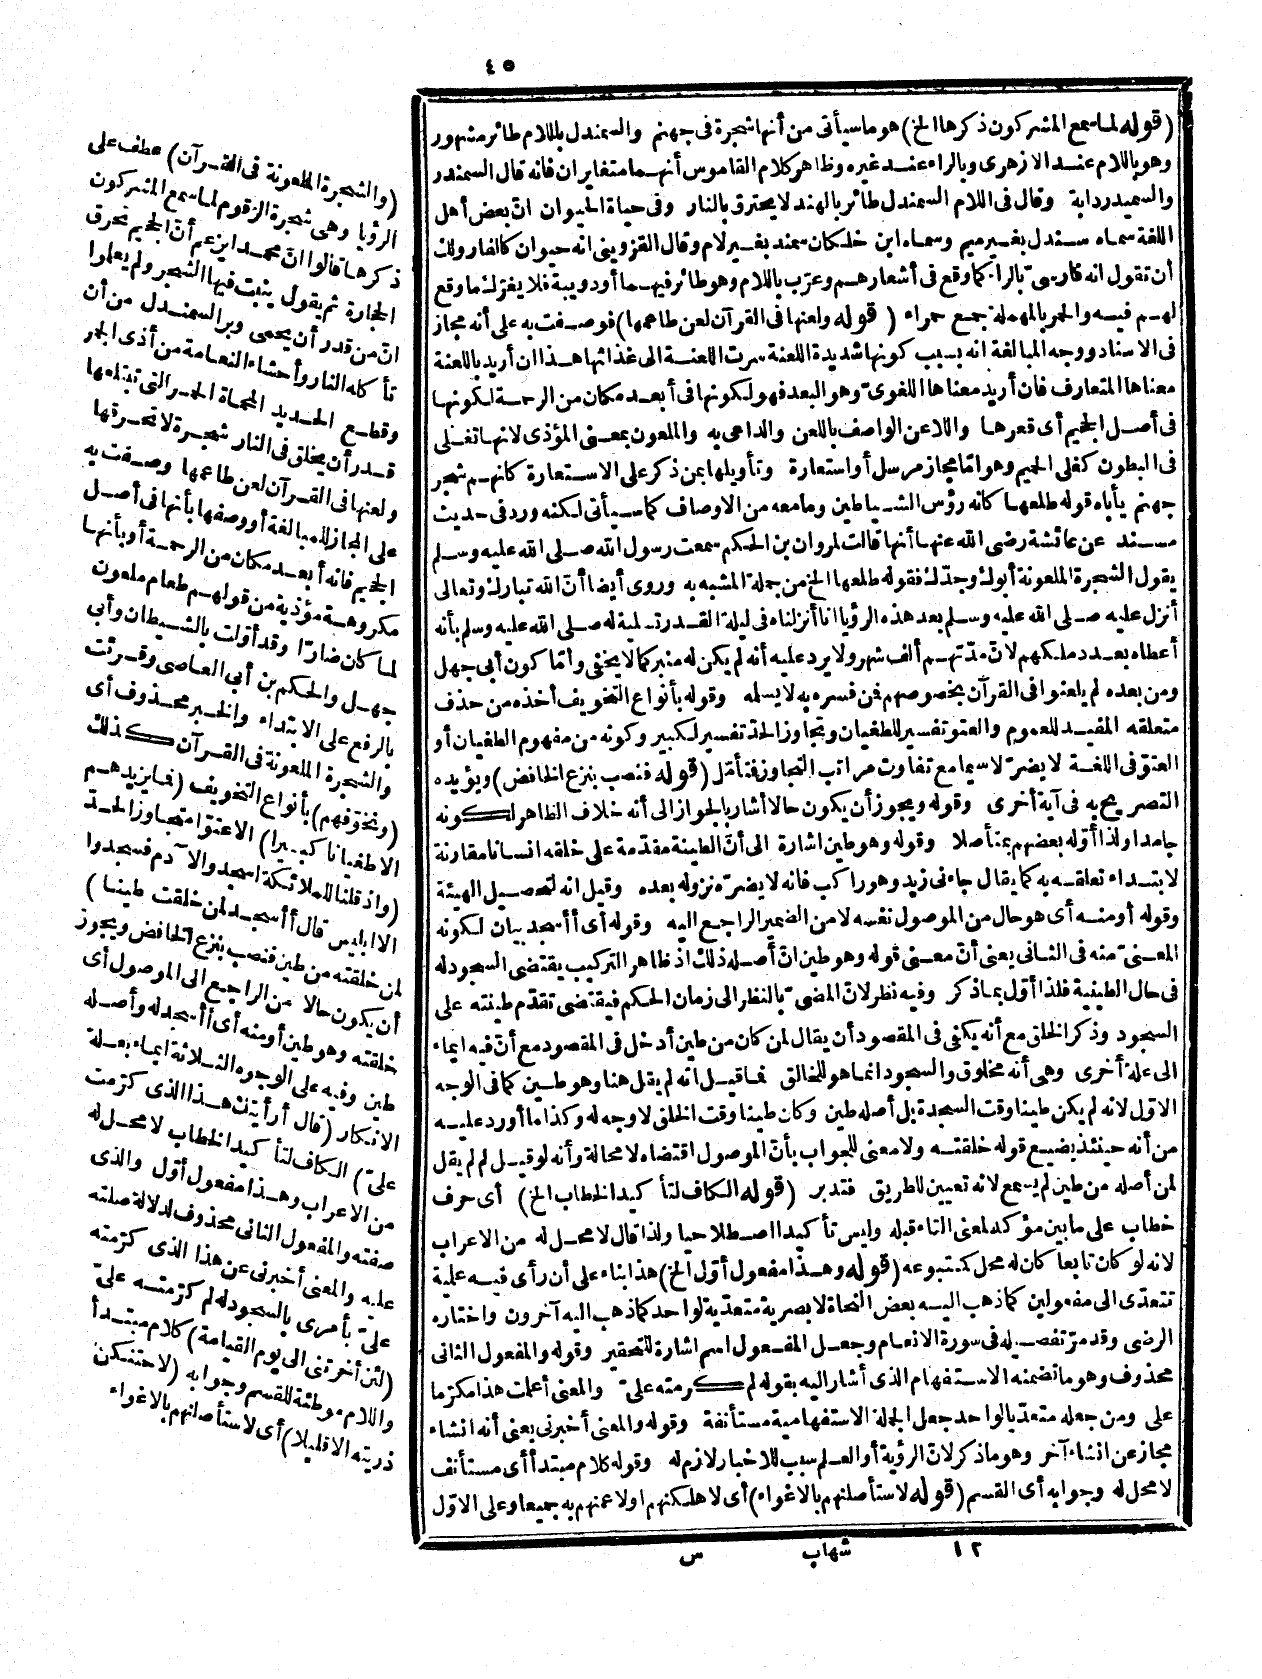 ٤٥
(قوله لما سمع المشركون ذكرها الخ) هو ما سيأتى من أنها شجرة فى جهنم والسمندل باللام طائر مشهور
وهو باللام عند الازهرى وبالراء عند غيره وظاهر كلام القاموس أنهما متغايران فانه قال السمندر
والسميدر دابة وقال فى اللام السمندل طائر بالهند لا يحترق بالنار وفى حياة الحيوان انّ بعض أهل
اللغة سماه سندل بغير ميم وسماه ابن خلكان سمند بغير لام وقال القزوينى انه حيوان كالفار ولك
أن تقول انه فارسىّ بالراء كما وقع فى أشعارهم وعرّب باللام وهو طائر فيهما أو دويبة فلا يغرّك ما وقع
لهم فيه والحمر بالمهملة جمع حمراء (قوله ولعنها فى القرآن لعن طاعمها) فوصفت به على أنه مجاز
فى الاسناد ووجه المبالغة انه بسبب كونها شديدة اللعنة سرت اللعنة الى غذائها هذا ان أريد باللعنة
معناها المتعارف فان أريد معناها اللغوىّ وهو البعد فهو لكونها فى أبعد مكان من الرحمة لكونها
فى أصل الجحيم أى قعرها واللاعن الواصف باللعن والداعى به والملعون بمعنى المؤذى لانها تغلى
فى البطون كغلى الحميم وهو امّا مجاز مرسل أو استعارة وتأويلها بمن ذكر على الاستعارة كانهم شجر
جهنم يأباه قوله طلعها كانه رؤس الشياطين وما معه من الاوصاف كما سيأتى لكنه ورد فى حديث
مسند عن عائشة رضى الله عنها أنها قالت لمروان بن الحكم سمعت رسول الله صلى الله عليه وسلم
يقول الشجرة الملعونة أبوك وجدّك فقوله طلعها الخ من جملة المشبه به وروى أيضا أنّ الله تبارك وتعالى
أنزل عليه صلى الله عليه وسلم بعد هذه الرؤيا انا أنزلناه فى ليلة القدر تسلية له صلى الله عليه وسلم بأنه
أعطاه بعدد ملكهم لانّ مدّتهم ألف شهر ولا يرد عليه أنه لم يكن له منبر كما لا يخفى وأمّا كون أبى جهل
ومن بعده لم يلعنوا فى القرآن بخصوصهم فمن فسره به لا يسلمه وقوله بأنواع التخويف أخذه من حذف
متعلقه المفيد للعموم والعتو تفسير للطغيان وتجاوز الحدّ تفسير لكبير وكونه من مفهوم الطغيان أو
العتوّ فى اللغة لا يضرّ لا سيما مع تفاوت مراتب التجاوز فتأمّل (قوله فنصب بنزع الخافض) ويؤيده
التصريح به فى آية أخرى وقوله ويجوز أن يكون حالا أشار بالجواز الى أنه خلاف الظاهر لكونه
جامدا ولذا أوّله بعضهم بمتأصلا وقوله وهو طين اشارة الى أنّ الطينة مقدّمة على خلقه انسانا مقارنة
لابتداء تعلقه به كما يقال جاءنى زيد وهو راكب فانه لا يضرّه نزوله بعده وقيل انه لتحصيل الهيئة
وقوله أو منه أى هو حال من الموصول نفسه لا من الضمير الراجع اليه وقوله أى أأسجد بيان لكونه
المعنىّ منه فى الثانى يعنى أنّ معنى قوله وهو طين انّ أصله ذلك اذ ظاهر التركيب يقتضى السجود له
فى حال الطينية فلذا أوّل بما ذكر وفيه نظر لانّ المضىّ بالنظر الى زمان الحكم فيقتضى تقدّم طينته على
السجود وذكر الخلق مع أنه يكفى فى المقصود أن يقال لمن كان من طين أدخل فى المقصود مع أنّ فيه ايماء
الى علة أخرى وهى أنه مخلوق والسجود انما هو للخالق فما قيل انه لم يقل هنا وهو طين كما فى الوجه
الاوّل لانه لم يكن طينا وقت السجدة بل أصله طين وكان طينا وقت الخلق لا وجه له وكذا ما أورد عليه
من أنه حينئذ يضيع قوله خلقته ولا معنى للجواب بأنّ الموصول اقتضاه لا محالة وأنه لو قيل لم لم يقل
لمن أصله من طين لم يسمع لانه تعيين للطريق فتدبر (قوله الكاف لتأكيد الخطاب الخ) أى حرف
خطاب على ما بين مؤكد لمعنى التاء قبله وليس تأكيدا اصطلاحيا ولذا قال لا محل له من الاعراب
لانه لو كان تابعا كان له محل كمتبوعه (قوله وهذا مفعول أوّل الخ) هذا بناء على أن رأى فيه علمية
تتعدّى الى مفعولين كما ذهب اليه بعض النحاة لا بصرية متعدّية لواحد كما ذهب اليه آخرون واختاره
الرضى وقد مرّ تفصيله فى سورة الانعام وجعل المفعول اسم اشارة للتحقير وقوله والمفعول الثانى
محذوف وهو ما تضمنه الاستفهام الذى أشار اليه بقوله لم كرمته علىّ والمعنى أعلمت هذا مكرّما
على ومن جعله متعدّيا لواحد جعل الجملة الاستفهامية مستأنفة وقوله والمعنى أخبرنى يعنى أنه انشاء
مجاز عن انشاء آخر وهو ما ذكر لانّ الرؤية أو العلم سبب للاخبار لازم له وقوله كلام مبتدأ أى مستأنف
لا محل له وجوابه أى القسم (قوله لاستأصلنهم بالاغواء) أى لاهلكنهم أو لاعمنهم به جميعا وعلى الاوّل
(والشجرة الملعونة فى القرآن) عطف على
الرؤيا وهى شجرة الزقوم لما سمع المشركون
ذكرها قالوا انّ محمدا يزعم أنّ الجحيم تحرق
الحجارة ثم يقول ينبت فيها الشجر ولم يعلموا
انّ من قدر أن يحمى وبر السمندل من أن
تأكله النار وأحشاء النعامة من أذى الجمر
وقطع الحديد المحماة الحمر التى تبتلعها
قدر أن يخلق فى النار شجرة لا تحرقها
ولعنها فى القرآن لعن طاعمها وصفت به
على المجاز للمبالغة أو وصفها بأنها فى أصل
الجحيم فانه أبعد مكان من الرحمة أو بأنها
مكروهة مؤذية من قولهم طعام ملعون
لما كان ضارّا وقد أوّلت بالشيطان وأبى
جهل والحكم بن أبى العاصى وقرئت
بالرفع على الابتداء والخبر محذوف أى
والشجرة الملعونة فى القرآن كذلك
(ونخوّفهم) بأنواع التخويف (فما يزيدهم
الا طغيانا كبيرا) الا عتوّا متجاوز الحدّ
(واذ قلنا للملائكة اسجدوا لآدم فسجدوا
الا ابليس قال أأسجد لمن خلقت طينا)
لمن خلقته من طين فنصب بنزع الخافض ويجوز
أن يكون حالا من الراجع الى الموصول أى
خلقته وهو طين أو منه أى أأسجد له وأصله
طين وفيه على الوجوه الثلاثة ايماء بعلة
الانكار (قال أرأيتك هذا الذى كرّمت
علىّ) الكاف لتأكيد الخطاب لا محل له
من الاعراب وهذا مفعول أوّل والذى
صفته والمفعول الثانى محذوف لدلالة صلته
عليه والمعنى أخبرنى عن هذا الذى كرّمته
علىّ بأمرى بالسجود له لم كرّمته علىّ
(لئن أخرتنى الى يوم القيامة) كلام مبتدأ
واللام موطئة للقسم وجوابه (لاحتنكن
ذريته الا قليلا) أى لاستأصلنهم بالاغواء
١٢ شهاب س